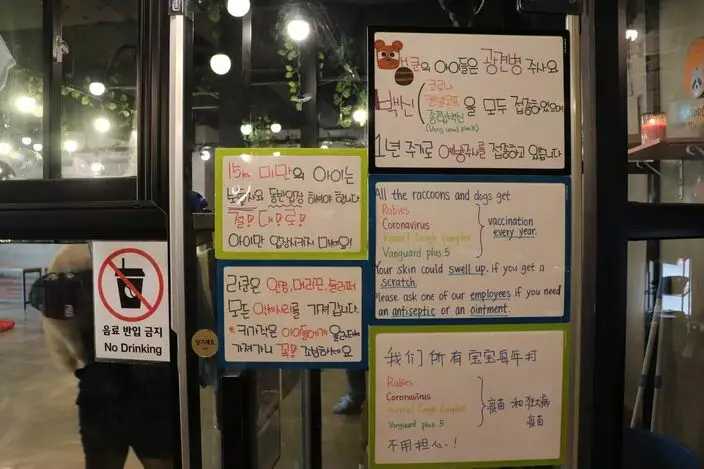 라쿤의 아이들은 광견병 주사와
백신
코로나
켄넬코프
종합백신
(Vanguard plus 5)
을 모두 접종하였으며
1년 주기로 예방주사를 접종하고 있습니다
15세 미만의 아이는
보호자와 동반입장 하셔야 합니다
절!대!로!
아이만 입장시키지 마세요!
All the raccoons and dogs get
Rabies
Coronavirus
Kennel Cough Complex
Vanguard plus 5
vaccination
every year.
Your skin could swell up. if you get a
scratch.
Please ask one of our employees if you need
an antiseptic or an ointment.
라쿤은 인형, 머리끈, 슬리퍼
모든 악세사리를 가져갑니다.
* 귀가작은 아이들에게 올라타
가져가니 꼭! 조심하세요
음료 반입 금지
No Drinking
我们所有宝宝每年打
Rabies
Coronavirus
Kennel Cough Complex
Vanguard plus 5
疫苗和狂犬病
疫苗
不用担心!